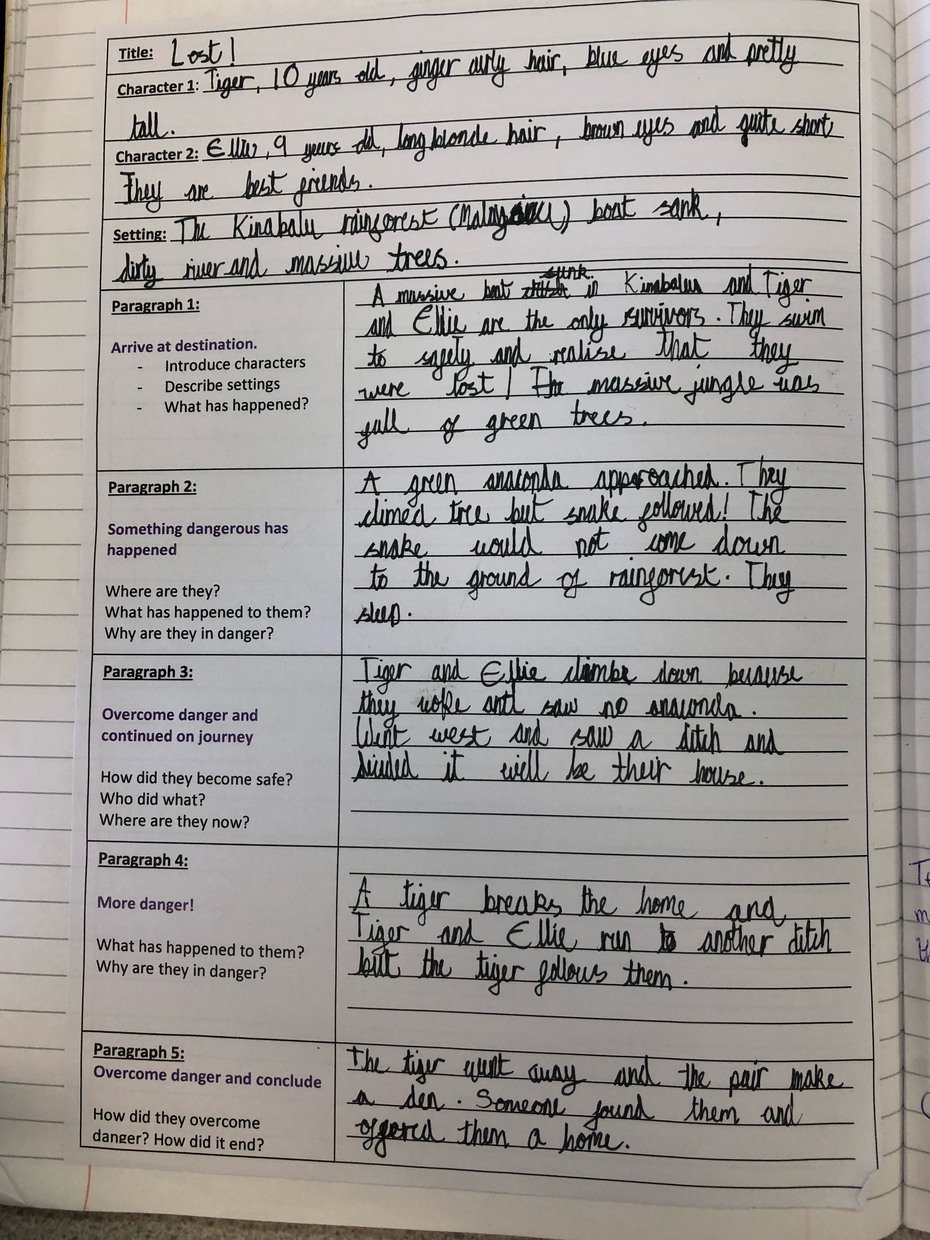 Title: Lost!
Character 1: Tiger, 10 years old, ginger curly hair, blue eyes and pretty
tall.
Character 2: Ellie, 9 years old, long blonde hair, brown eyes and quite short
They are best friends.
Setting: The Kinabalu rainforest boat sank,
dirty river and massive trees.
Paragraph 1:
Arrive at destination.
- Introduce characters
- Describe settings
- What has happened?
A massive boat sunk in Kinabalua and Tiger
and Ellie are the only survivors. They swim
to safely and realise that they
were lost! The massive jungle was
full of green trees.
Paragraph 2:
Something dangerous has
happened
Where are they?
What has happened to them?
Why are they in danger?
A green anaconda approached. They
climed tree but snake followed! The
snake would not come down
to the ground of rainforest. They
sleep.
Paragraph 3:
Overcome danger and
continued on journey
How did they become safe?
Who did what?
Where are they now?
Tiger and Ellie climbe down because
they woke and saw no anaconda.
Went west and saw a ditch and
dicided it will be their house.
Paragraph 4:
More danger!
What has happened to them?
Why are they in danger?
A tiger breaks the home and
Tiger and Ellie run to another ditch
but the tiger follows them.
Paragraph 5:
Overcome danger and conclude
How did they overcome
danger? How did it end?
The tiger went away and the pair make
a den. Someone found them and
offered them a home.